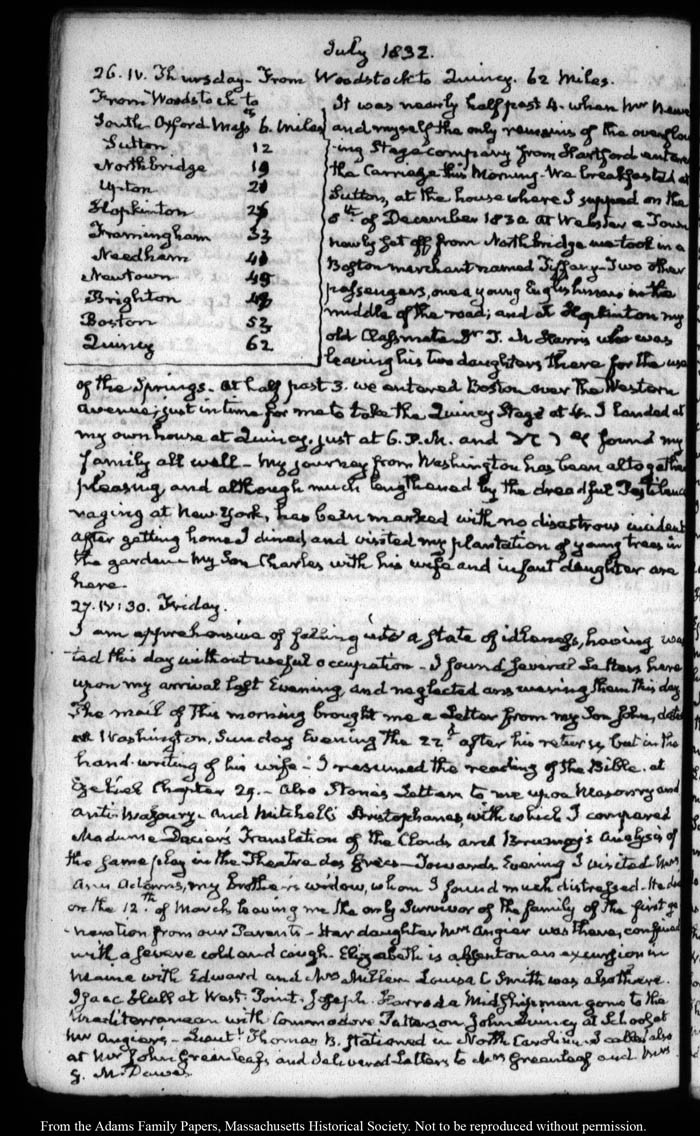 July 1832.
26. IV. Thursday. From Woodstock to Quincy. 62 Miles.
From Woodstock to
South Oxford Mass 6. Miles
Sutton 12
Northbridge 19
Upton
Hopkinton
Framingham 33
Needham
Newtown
Brighton
Boston 52
Quincy 62
It was nearly half past 4. when Mr
and myself the only remains of the overflow
-ing Stage company from Hartford entered
the Carriage this Morning. We breakfasted at
Sutton, at the house where I supped on the
of December 1830 at Webster a Town
newly set off from Northbridge we took in a
Boston merchant named Tiffany. Two other
passengers, one a young Englishman in the
middle of the road; and at Hopkinton my
old Classmate Dr T. M Harris who was
leaving his two daughters there for the use
of the Springs. At half past 3. we entered Boston over the Western
avenue; just in time for me to take the Quincy Stage at 4. I landed at
my own house at Quincy, just at 6. P.M. and found my
family all well — My journey from Washington has been altogether
pleasing and although much lengthened by the dreadful Pestilence
raging at New York, has been marked with no disastrous incident
After getting home I dined, and visited my plantation of young trees in
the garden — My Son Charles with his wife and infant daughter are
here.
27. IV:30. Friday.
I am apprehensive of falling into a state of idleness, having was
-ted this day without useful occupation. I found several Letters here
upon my arrival last Evening, and neglected answering them this day
The mail of this morning brought me a Letter from my Son John, dated
at Washington, Sunday Evening the 22d after his return, but in the
hand-writing of his wife — I resumed the reading of the Bible. at
Ezekiel Chapter 29. — Also Stone's Letters to me upon Masonry and
Anti-Masonry. And Mitchell's Aristophanes, with which I compared
Madame Dacier's Translation of the Clouds and Brumoy's Analysis of
the same play in the Theatre des Grecs — Towards Evening I visited Mrs
Ann Adams, my brother's widow, whom I found much distressed. He died
on the 12th of March leaving me the only Survivor of the family of the first ge
-neration from our Parents — Her daughter Mrs Angier was there, confined
with a severe cold and cough. Elizabeth is absent on an excursion in
Maine with Edward and Mrs Miller. Louisa C Smith was also there.
Isaac Hull at West-Point. Joseph Harrod a Midshipman gone to the
Mediterranean with Commodore Patterson John Quincy at School at
Mr Angier's — Lieutt Thomas B. stationed in North Carolina I called also
at Mr John Greenleaf's and delivered Letters to Mrs Greenleaf and Mrs
G. M. Dawes
From the Adams Family Papers, Massachusetts Historical Society. Not to be reproduced without permission.